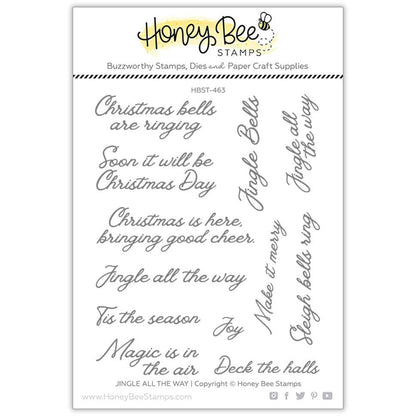 Honey Bee
STAMPS
Buzzworthy Stamps, Dies and Paper Craft Supplies
HBST-463
Christmas bells
are ringing
Soon it will be
Christmas Day
Christmas is here,
bringing good cheer.
Jingle all the way
Tis the season
Joy
Magic is in
the air
Deck the halls
Jingle Bells
Jingle all
the way
Make it merry
Sleigh bells ring
JINGLE ALL THE WAY | Copyright © Honey Bee Stamps
www.HoneyBeeStamps.com